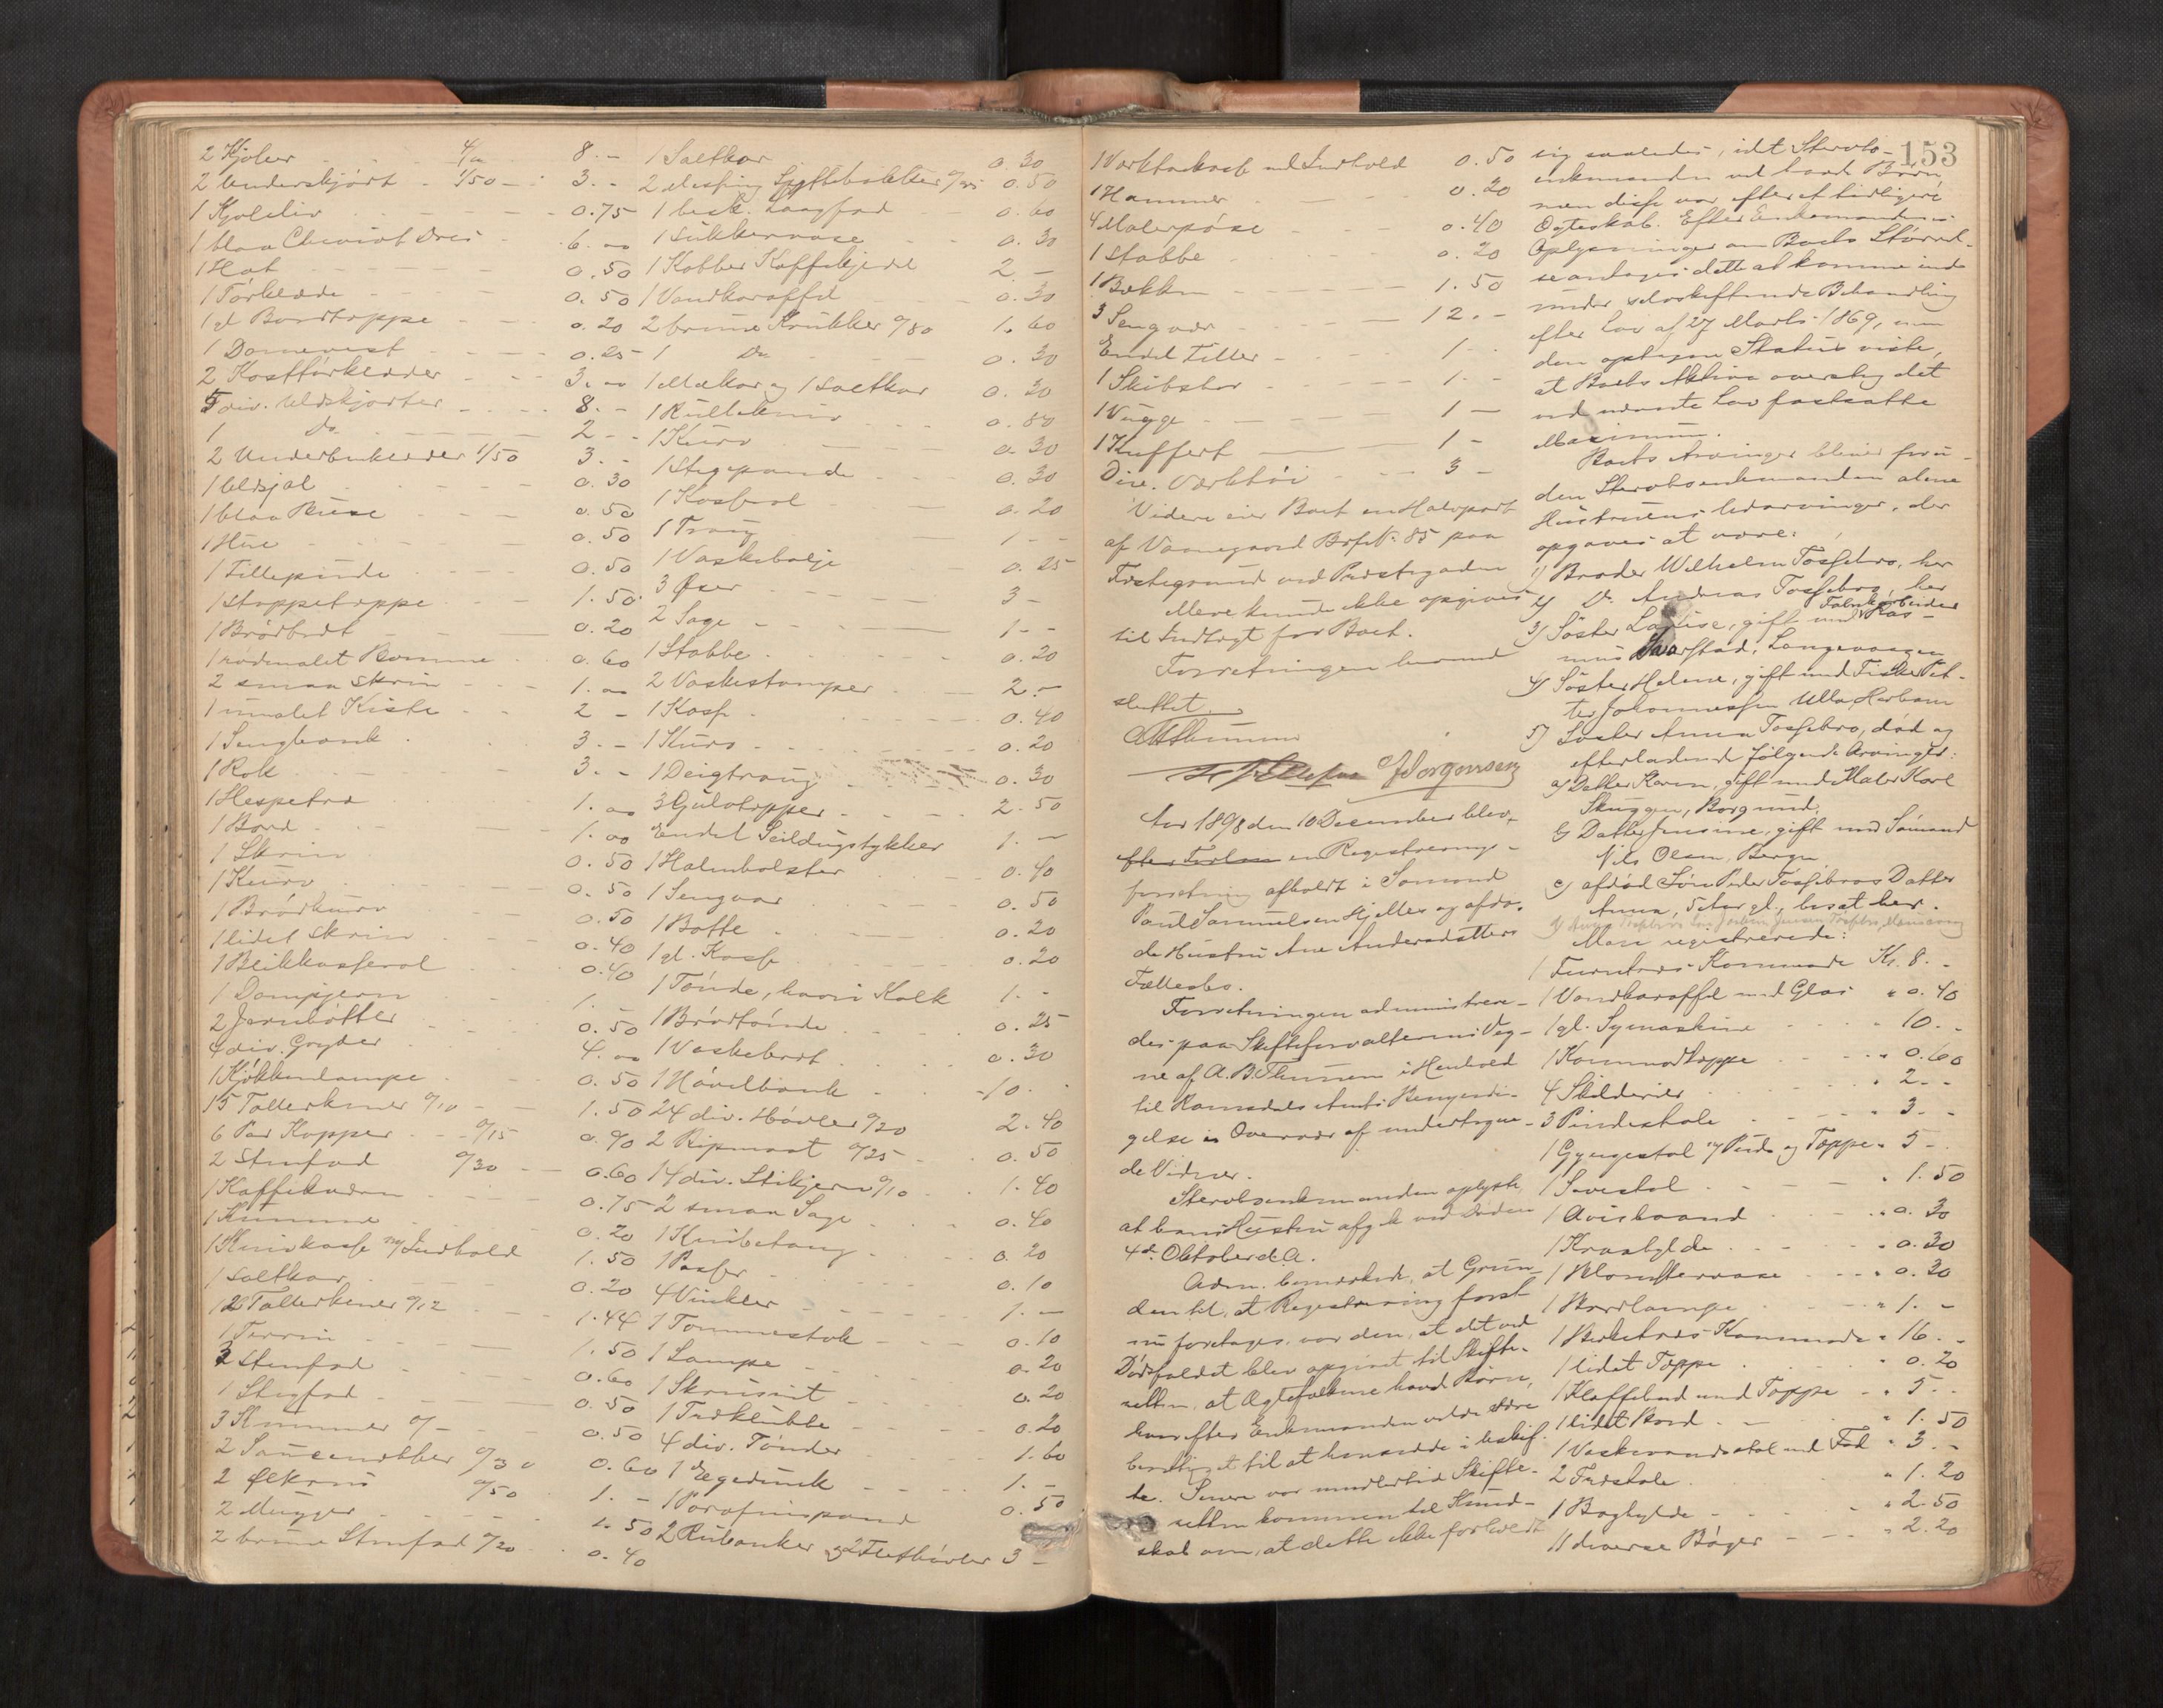 2 Kjoler 4/00 8. -
2 Underskjört 1/50 3. -
1 Kjoleliv 0.75
1 blaa Cheviot Dres 6. 00
1 Hat 0.50
1 Törklæde 0.50
1 gl Bordteppe 0.20
1 Damevest 0.25
2 Kostförklæder 3. 00
5 div. Uldskjorter 8. -
1 Do 2 -
2 Underbenklæder 1/50 3. -
1 Uldsjal 0.30
1 blaa Buse 0.50
1 Hue 0.50
1 Fillepude 0.50
1 Stoppeteppe 1.50
1 Brödbret 0.20
1 rödmalet Bomme 0.60
2 smaa Skrin 1. 00
1 umalet Kiste 2 -
1 Sengbænk 3. -
1 Rok 3. -
1 Hespetræ 1. 00
1 Bord 1. 00
1 Skrin 0.50
1 Kurv 0.50
1 Brödkurv 0.50
1 lidet Skrin 0.40
1 Blikkasserol 0.40
1 Dampjern 1. -
2 Jernbötter 0.50
4 div. Gryder 4. 00
1 Kjökkenlampe 0.50
15 Tallerkener 0/10 1.50
6 Par Kopper 0/15 0.90
2 Stenfad 0/30 0.60
1 Kaffekværn 0.75
1 Kumme 0.20
1 Knivkasse m/ Indhold 1.50
1 Saltkar 0.20
12 Tallerkener 0/12 1.44
1 Terrin 1.50
3 Stenfad 0.60
1 Stegfad 0.50
3 Kummer 0.50
2 Saucenebber 0/30 0.60
2 Ölkrus 0/50 1. -
2 Mugger 1.50
2 brune Stenfad 0/20 0.40
1 Saltkar 0.30
2 Messing Lysestakker 0/25 0.50
1 besk. Laagfad 0.60
1 Sukkervase 0.30
1 Kobber Kaffekjedel 2 -
1 Vandkaraffel 0.30
2 brune Krukker 0/80 1.60
1 Do 0.30
1 Mælkar og 1 Saltkar 0.20
1 Rullekniv 0.80
1 Kurv 0.30
1 Stegepande 0.30
1 Kasserol 0.20
1 Traug 1 - -
1 Vaskebalje 0.25
3 Öser 3 -
2 Sage 1 - -
1 Stabbe 0.20
2 Vaskestamper 2. -
1 Kasse 0.40
1 Kurv 0.20
1 Deigtraug 0.30
3 Gulvtepper 2.50
Endel Seildugstykker 1. -
1 Halmbolster 0.40
1 Sengvar 0.50
1 Bötte 0.20
1 gl. Kasse 0.20
1 Tönde, hvori Kalk 1. -
1 Brödtönde 0.25
1 Vaskebret 0.30
1 Hövelbænk 10. -
24 div. Hövler 0/10 2.40
2 Ripmaat 0/25 0.50
14 div. Stikjern 0/10 1.40
2 smaa Sage 0.40
1 Knibetang 0.20
1 Passer 0.10
4 Vinkler 1. -
1 Tommestok 0.10
1 Lampe 0.20
1 Skrustit 0.20
1 Træklubbe 0.20
4 div. Tönder 1.60
1 Egedunk 1. -
1 Parafinspand 0.50
2 Rubanker og 2 Flethövler 3 -
1 Værktøikasse med Indhold 0.50
1 Hammer 0.20
4 Malerpöse 0.40
1 Stabbe 0.20
1 Bækken 1.50
3 Sengvær 12. -
Endel Filler 1 -
1 Skibsbor 1. -
1 Vugge 1 -
1 Kuffert 1 -
Dive. Værktöi 3 -
Videre eier Boet en Halvpart
af Vaanegaard Brf. No. 85 paa
Fæstegrund ved Præstegaden
Mere kunde ikke opgives
til Indtægt for Boet.
Forretningen hermed
sluttet.
A B Thunem
J Jörgensen
Aar 1898 den 10 December blev,
efter Forlan en Registrerings-
forretning afholdt i Sömand
Paul Samuelsen Hjelles og afdö-
de Hustru Ane Andersdatters
Fællesbo.
Forretningen administrere-
des paa Skifteforvalterens Veg-
ne af A. B. Thunem i Henhold
til Romsdals Amts Bemyndi-
gelse i Overvær af undertegne-
de Vidner.
Stervboenkemanden oplyste
at hans Hustru afgik ved Döden
4de Oktober d. A.
Adm. bemærkede, at Grun-
den til, at Registrering först
nu foretages, var den, at det ved
Dödsfaldet blev opgivet til Skifte-
retten, at Ægtefolkene havde Börn,
hvorefter Enkemanden vilde være
berettiget til at hensidde i uskif-
te. Senere var imidlertid Skifte-
retten kommen til Kund-
skab om, at dette ikke forholdt
153
sig saaledes, idet Stervbo-
enkemanden vel havde Börn
men disse var efter et tidligere
Ægteskab. Efter Enkemandens
Oplysninger om Boets Störrel-
se antages dette at komme ind
under selvskiftende Behandling
efter Lov af 27 Marts 1869, men
den optagne Status viste,
at Boets Aktiva oversteg det
ved nævnte Lov fastsatte
Maximum.
Boets Arvinger bliver foru-
den Stervboenkemanden alene
Hustruens Udarvinger, der
opgaves at være:
1) Broder Wilhelm Tossebro, her
2) Do Andreas Tossebro, her
3) Söster Lovise, gift med Fabrikarbeider Ras-
mus Skarstad, Langevaagen
4) Söster Helene, gift med Fisker Pet-
ter Johannessen Ulla, Haram
5) Söster Anna Tossebro, död og
efterladende følgende Arvinger:
a) Datter Karen, gift med Maler Karl
Skuggen, Borgund.
b) Datter Jensine, gift med Sömand
Nils Olsen, Bergen
c) afdöd Sön Peder Tossebros Datter
Anna, 5 Aar gl., bosat her.
Man registrerede:
1 Furutræs Kommode Kr. 8. -
1 Vandkaraffel med Glas " 0.40
1 gl. Symaskine " 10. -
1 Kommodteppe " 0.60
4 Skilderier " 2. -
3 Pindestole " 3. -
1 Gyngestol m/ Pude og Teppe " 5 -
1 Sovestol " 1.50
1 Avisbaand " 0.30
1 Kravhylde " 0.30
1 Blomstervase " 0.30
1 Bordlampe " 1. -
1 Birketræs Kommode " 16. -
1 lidet Teppe " 0.20
1 Klaffebord med Teppe " 5. -
1 lidet Bord " 1.50
1 Vaskevandsstol med Fad " 3. -
2 Træstole " 1.20
1 Boghylde " 2.50
11 diverse Böger " 2.20